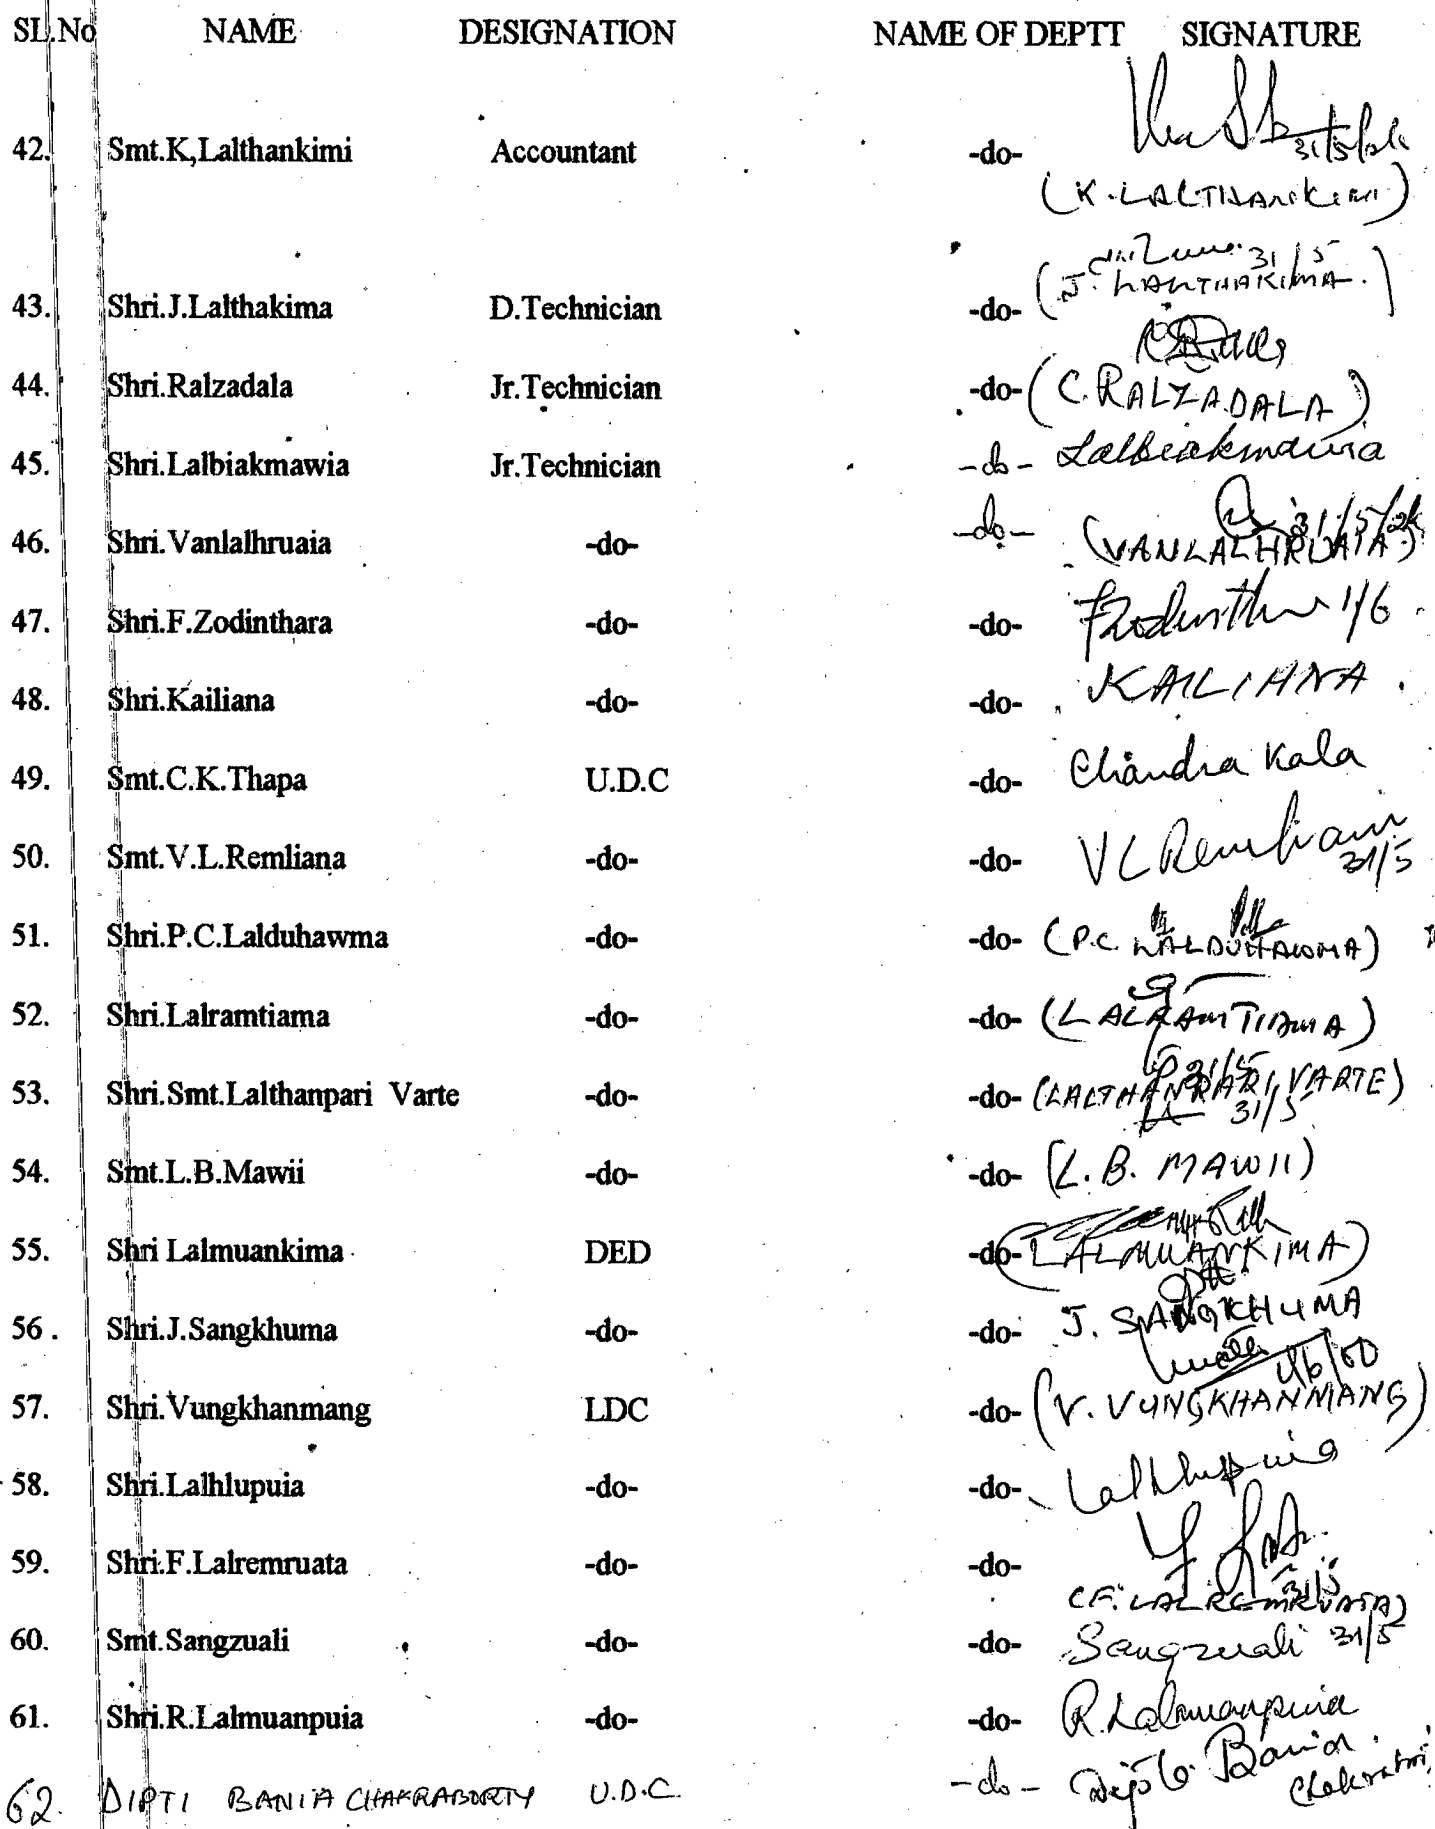 SL.No NAME DESIGNATION NAME OF DEPTT SIGNATURE
42. Smt.K,Lalthankimi Accountant -do- 31/5/2k
(K. LALTHANKIMI)
31/5
43. Shri.J.Lalthakima D.Technician -do- (J. LALTHAKIMA.)
44. Shri.Ralzadala Jr.Technician -do- (C. RALZADALA)
45. Shri.Lalbiakmawia Jr.Technician -do- Lalbiakmawia
31/5/2k
46. Shri.Vanlalhruaia -do- -do- (VANLALHRUAIA)
47. Shri.F.Zodinthara -do- -do- 1/6
48. Shri.Kailiana -do- -do- KAILIANA.
49. Smt.C.K.Thapa U.D.C -do- Chandra Kala
50. Smt.V.L.Remliana -do- -do- VL 31/5
51. Shri.P.C.Lalduhawma -do- -do- (P.C. LALDUHAWMA)
52. Shri.Lalramtiama -do- -do- (LALRAMTIAMA)
31/5
53. Shri.Smt.Lalthanpari Varte -do- -do- (LALTHANPARI VARTE)
31/5
54. Smt.L.B.Mawii -do- -do- (L.B. MAWII)
55. Shri Lalmuankima DED -do- (LALMUANKIMA)
56. Shri.J.Sangkhuma -do- -do- J. SANGKHUMA
1/6/00
57. Shri.Vungkhanmang LDC -do- (V. VUNGKHANMANG)
58. Shri.Lalhlupuia -do- -do- Lalhlupuia
59. Shri.F.Lalremruata -do- -do-
31/5
(F. LALREMRUATA)
60. Smt.Sangzuali -do- -do- Sangzuali 31/5
61. Shri.R.Lalmuanpuia -do- -do- R.Lalmuanpuia
62. DIPTI BANIA CHAKRABORTY U.D.C. -do- Dipti Bania.